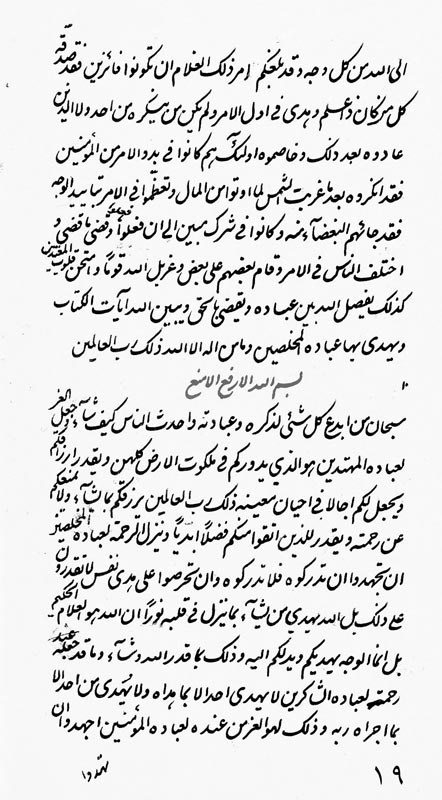 الی الله من کل وجه وقد بلغکم امر ذلک الغلام ان تکونوا فائزین فقد صدقه
کل من کان ذا علم وهدی فی اول الامر ولم یکن من ینکره من احد ولا الذین
عادوه بعد ذلک وخاصموه اولئک هم کانوا فی بدو الامر من المؤمنین
فقد انکروه بعد ما غربت الشمس لما اوتوا من المال وتعظموا فی الامر
فقد جائهم البغضآء منه وکانوا فی شرک مبین الی ان فعلوا ما فعلوا وقضی ما قضی و
اختلف الناس فی الامر وقام بعضهم علی بعض وغربل الله قوما وامتحن قلوب المعتدین
کذلک یفصل الله بین عباده ویقضی بالحق ویبین الله آیات الکتاب
ویهدی بها عباده المخلصین وما من اله الا الله ذلک رب العالمین
بسم الله الارفع الامنع
سبحان من ابدع کل شئی لذکره وعبادته واحدث الناس کیف شآء وجعل العز
لعباده المهتدین هو الذی یدورکم فی ملکوت الارض کلهن ویقدر ارزاقکم
ویجعل لکم اجالا فی احیان معینه ذلک رب العالمین یرزقکم بما شآء ولا یمنعکم
عن رحمته ویقدر للذین اتقوا منکم فضلا ابدیا وینزل الرحمة لعباده المخلصین
ان تجهدوا ان تدرکوه فلا تدرکوه وان تحرصوا علی هدی نفس لا تقدرون
علی ذلک بل الله یهدی من یشآء بما ینزل فی قلبه نورا ان الله هو العلام الحکیم
بل انما الوجه یهدیکم ویدلکم الیه وذلک مما قدر الله وشآء وما قد جعله عنده
رحمة لعباده الشاکرین لا یهدی احد الا بما هداه ولا یهدی من احد الا
بما اجراه ربه وذلک لهو العز من عنده لعباده المؤمنین اجهدوا ان
۱۹